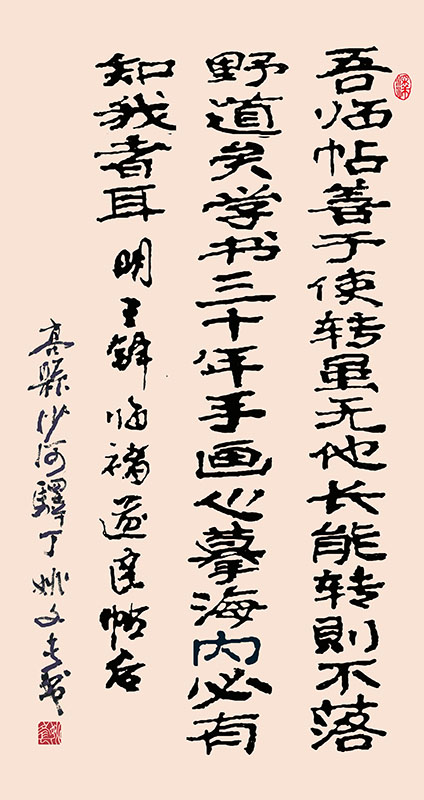 吾临帖善于使转虽无他长能转則不落
野道矣学书三十年手画心摹海内必有
知我者耳 明王鐸临褚遂良帖后
縣沙河驛丁姚文